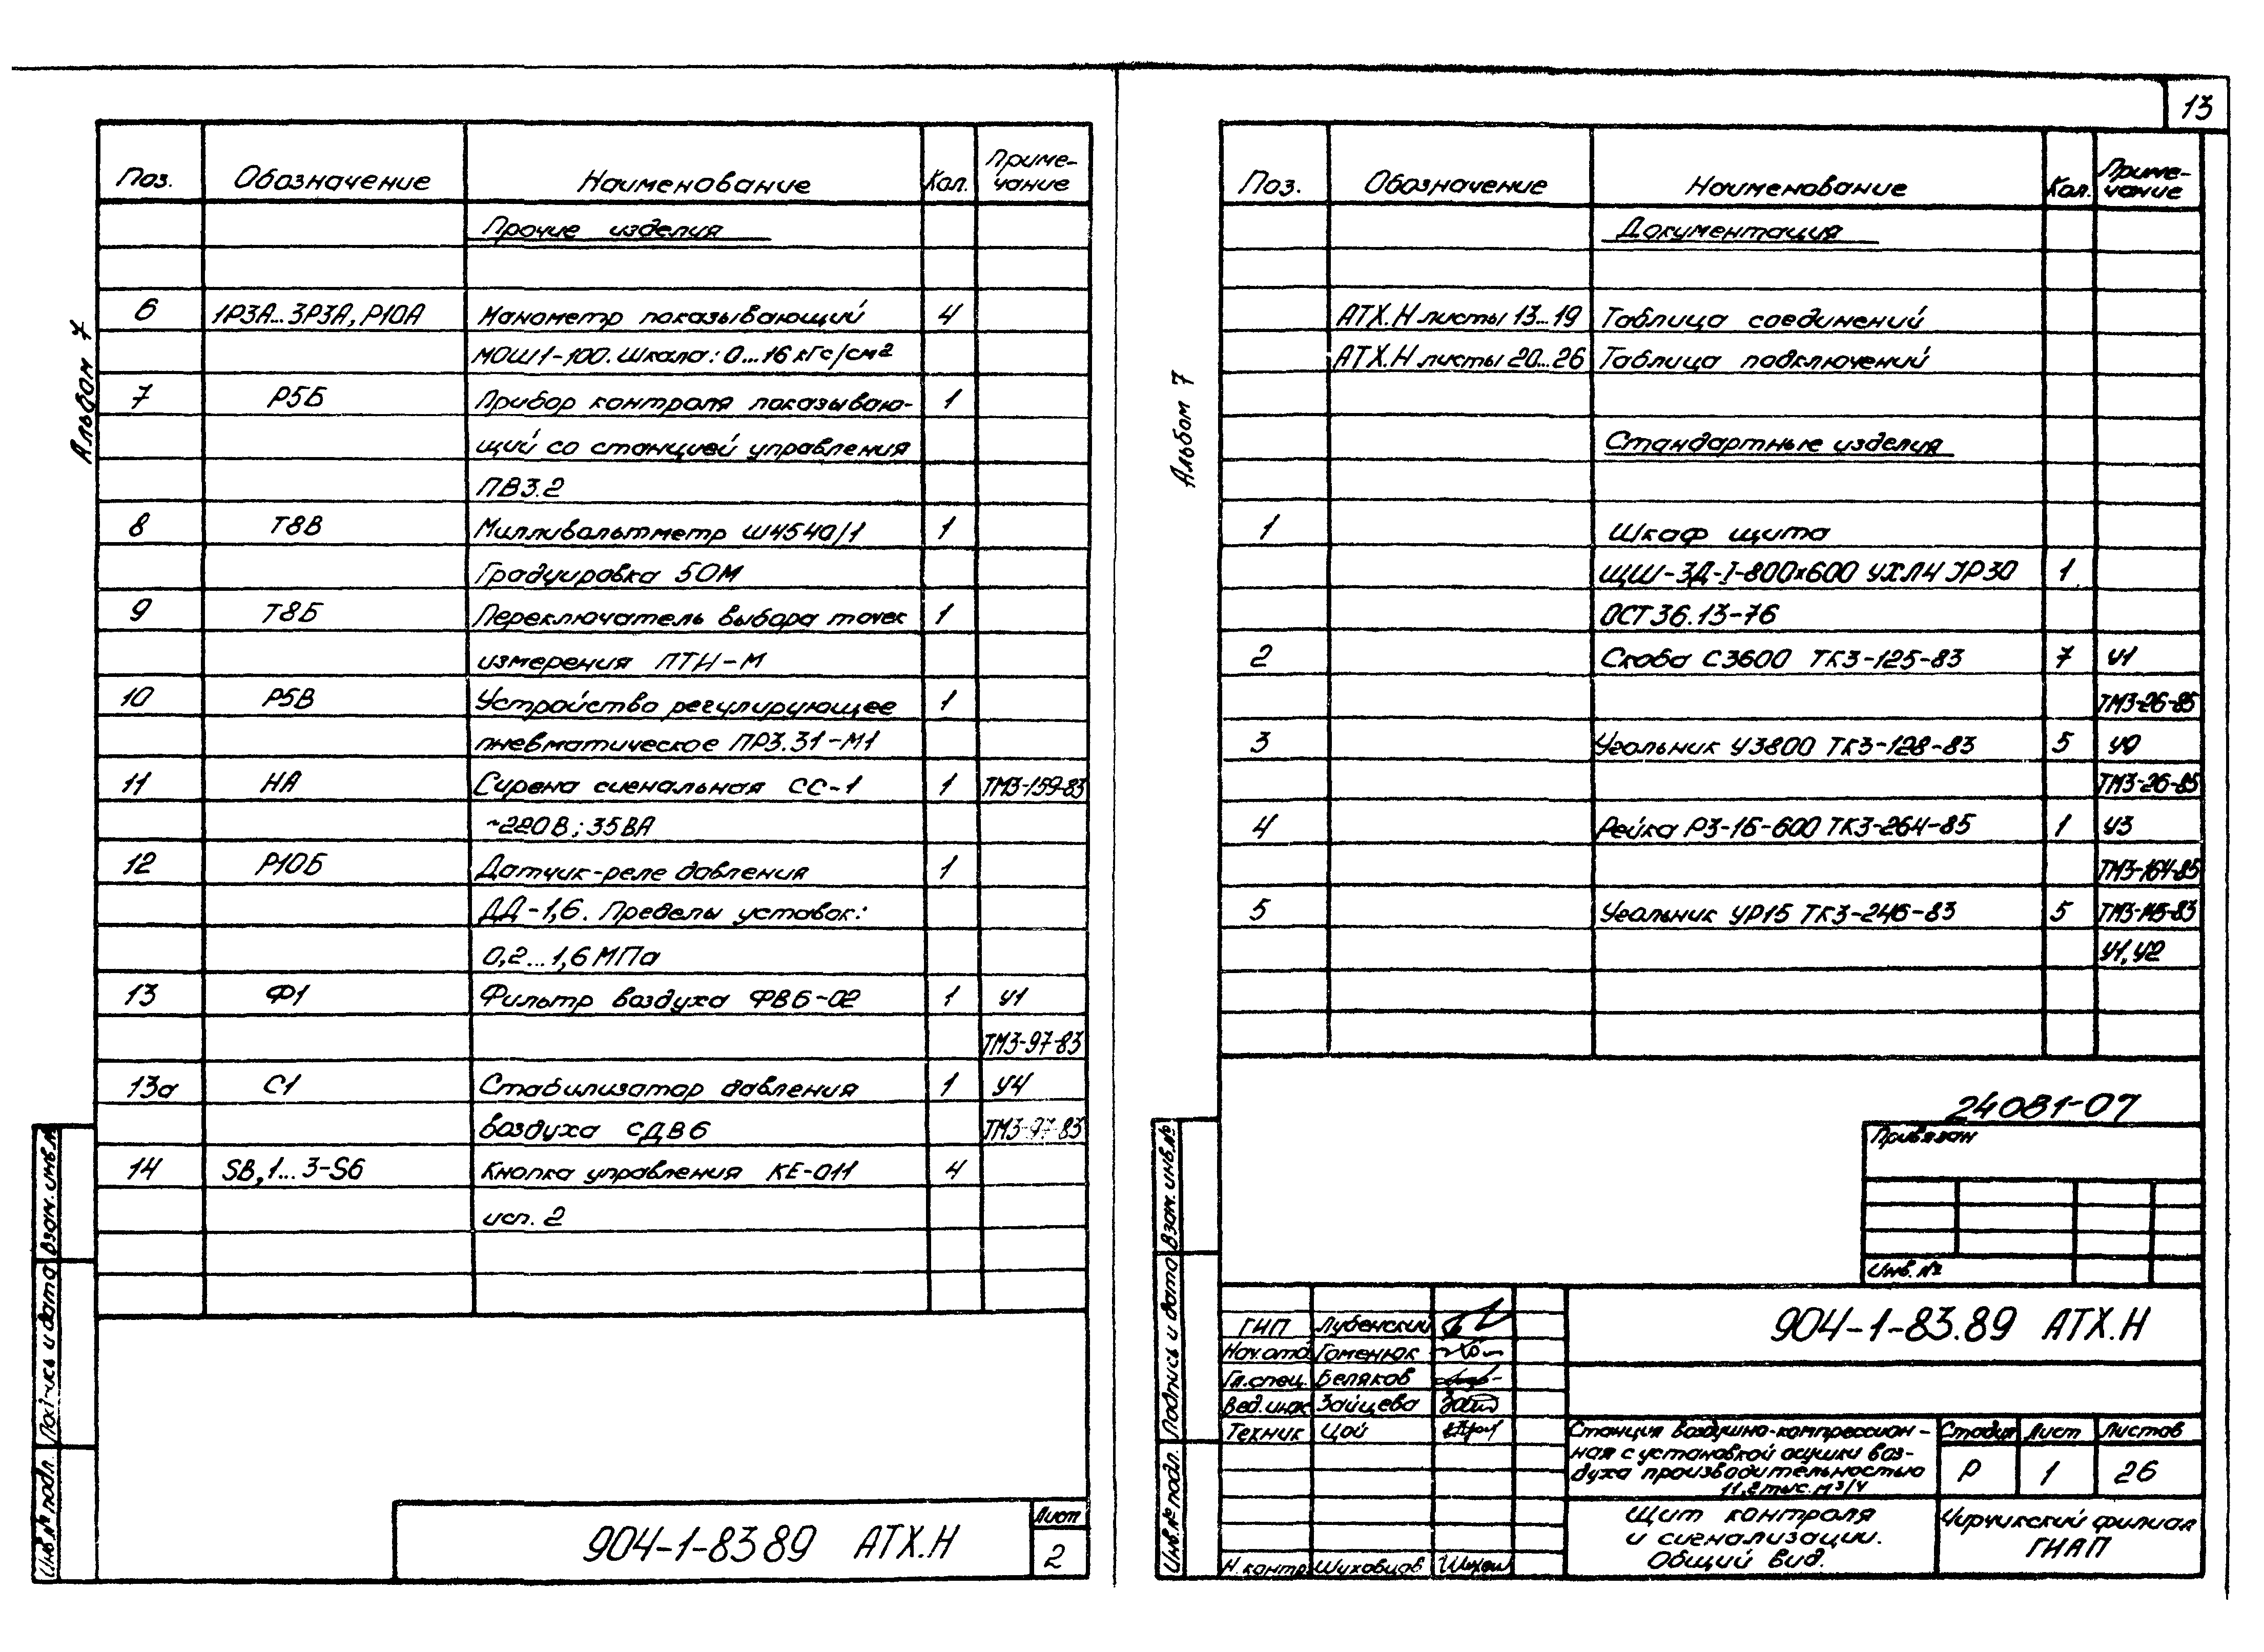 13
Альбом 7
Поз. Обозначение Наименование Кол. Приме-
чание
Прочие изделия
6 1Р3А...3Р3А, Р10А Манометр показывающий 4
МОШ1-100. Шкала: 0...16 кгс/см²
7 Р5Б Прибор контроля показываю- 1
щий со станцией управления
ПВ3.2
8 Т8В Милливольтметр Ш4540/1 1
Градуировка 50М
9 Т8Б Переключатель выбора точек 1
измерения ПТИ-М
10 Р5В Устройство регулирующее 1
пневматическое ПР3.31-М1
11 НА Сирена сигнальная СС-1 1 ТМ3-159-83
~220В; 35ВА
12 Р10Б Датчик-реле давления 1
ДД-1,6. Пределы уставок:
0,2...1,6 МПа
13 Ф1 Фильтр воздуха ФВ6-02 1 У1
ТМ3-97-83
13а С1 Стабилизатор давления 1 У4
воздуха СДВ6 ТМ3-97-83
14 SB,1...3-S6 Кнопка управления КЕ-011 4
исп. 2
Взам. инв.№
Подпись и дата
Инв.№ подл.
904-1-83 89 АТХ.Н
Лист
2
Альбом 7
Поз. Обозначение Наименование Кол. Приме-
чание
Документация
АТХ.Н листы 13...19 Таблица соединений
АТХ.Н листы 20...26 Таблица подключений
Стандартные изделия
1 Шкаф щита
ЩШ-ЗД-I-800х600 УХЛ4 IP30 1
ОСТ 36.13-76
2 Скоба С3600 ТК3-125-83 7 У1
ТМ3-26-85
3 Угольник У3800 ТК3-128-83 5 У9
ТМ3-26-85
4 Рейка Р3-15-600 ТК3-264-85 1 У3
ТМ3-164-85
5 Угольник УР15 ТК3-246-83 5 ТМ3-145-83
У1, У2
24081-07
Привязан
Инв.№
Взам. инв.№
Подпись и дата
Инв.№ подл.
904-1-83.89 АТХ.Н
ГИП Лубенский
Нач.отд Гоменюк
Гл.спец. Беляков
Вед.инж Зайцева
Техник Цой
Н.контр Шуховцов
Станция воздушно-компрессион-
ная с установкой осушки воз-
духа производительностью
11,2 тыс. м³/ч
Стадия Лист Листов
Р 1 26
Щит контроля
и сигнализации.
Общий вид.
Чирчикский филиал
ГИАП